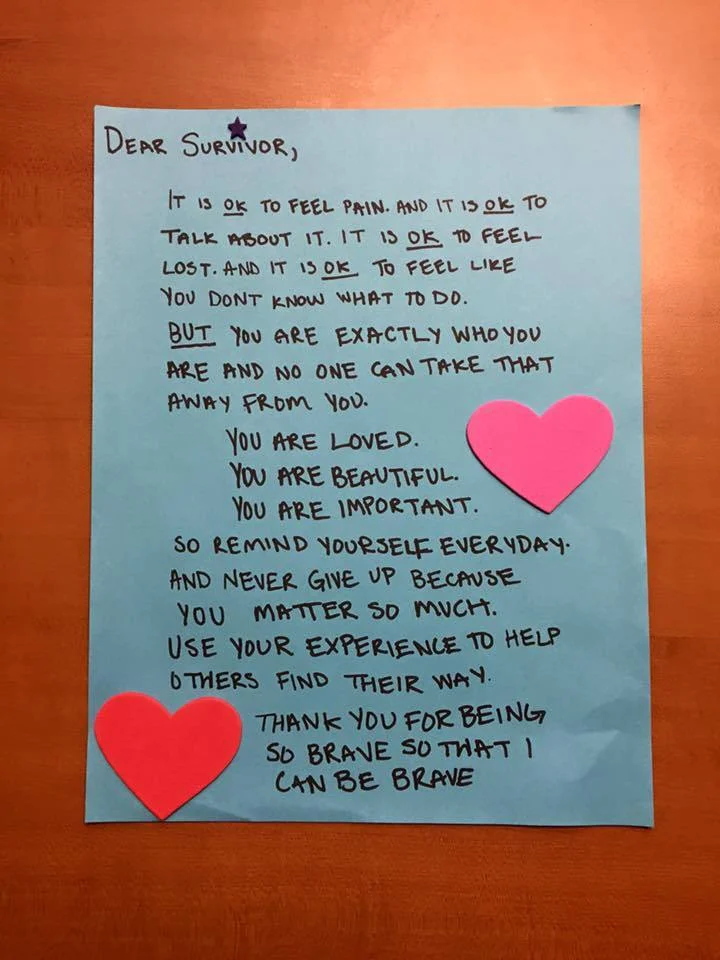 DEAR SURVIVOR,
IT IS OK TO FEEL PAIN. AND IT IS OK TO
TALK ABOUT IT. IT IS OK TO FEEL
LOST. AND IT IS OK TO FEEL LIKE
YOU DONT KNOW WHAT TO DO.
BUT YOU ARE EXACTLY WHO YOU
ARE AND NO ONE CAN TAKE THAT
AWAY FROM YOU.
YOU ARE LOVED.
YOU ARE BEAUTIFUL.
YOU ARE IMPORTANT.
SO REMIND YOURSELF EVERYDAY.
AND NEVER GIVE UP BECAUSE
YOU MATTER SO MUCH.
USE YOUR EXPERIENCE TO HELP
OTHERS FIND THEIR WAY.
THANK YOU FOR BEING
SO BRAVE SO THAT I
CAN BE BRAVE